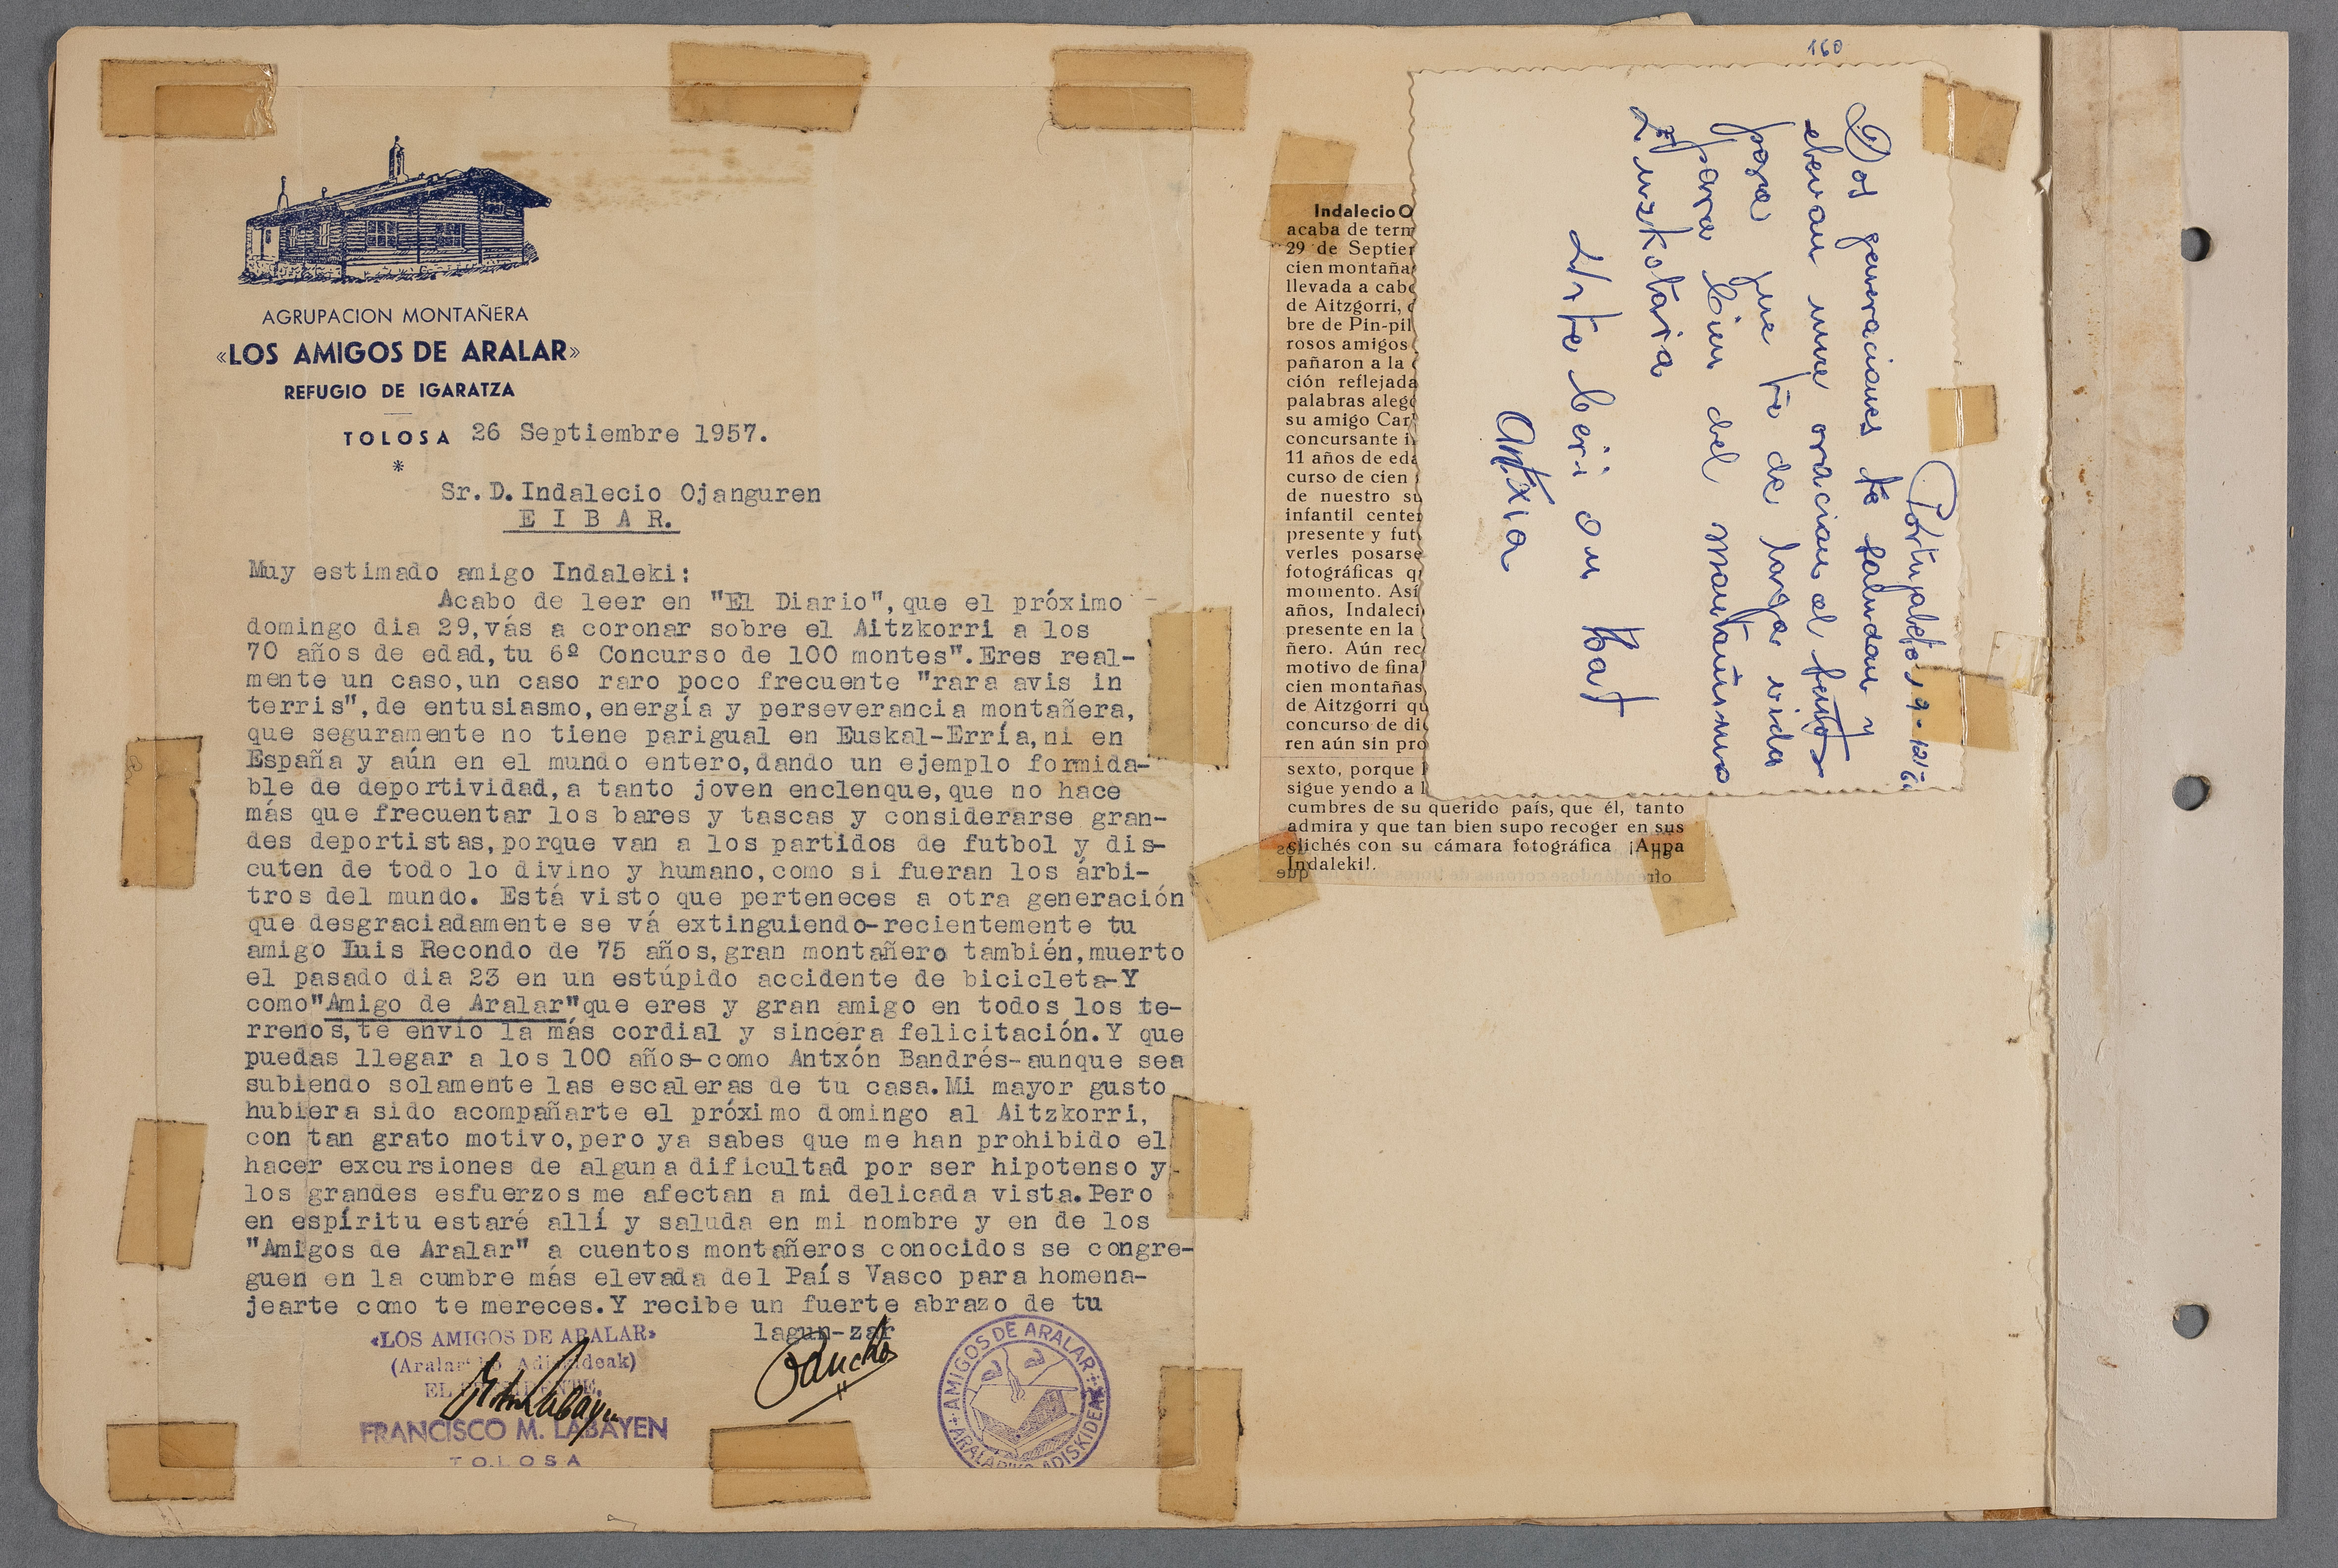 160
AGRUPACION MONTAÑERA
«LOS AMIGOS DE ARALAR»
REFUGIO DE IGARATZA
TOLOSA 26 Septiembre 1957.
*
Sr.D.Indalecio Ojanguren
E I B A R.
Muy estimado amigo Indaleki:
Acabo de leer en "El Diario",que el próximo
domingo dia 29,vás a coronar sobre el Aitzkorri a los
70 años de edad,tu 6º Concurso de 100 montes".Eres real-
mente un caso,un caso raro poco frecuente "rara avis in
terris",de entusiasmo,energía y perseverancia montañera,
que seguramente no tiene parigual en Euskal-Erría,ni en
España y aún en el mundo entero,dando un ejemplo formida-
ble de deportividad,a tanto joven enclenque,que no hace
más que frecuentar los bares y tascas y considerarse gran-
des deportistas,porque van a los partidos de futbol y dis-
cuten de todo lo divino y humano,como si fueran los árbi-
tros del mundo. Está visto que perteneces a otra generación
que desgraciadamente se vá extinguiendo-recientemente tu
amigo Luis Recondo de 75 años,gran montañero también,muerto
el pasado dia 23 en un estúpido accidente de bicicleta-Y
como"Amigo de Aralar"que eres y gran amigo en todos los te-
rrenos,te envío la más cordial y sincera felicitación.Y que
puedas llegar a los 100 años-como Antxón Bandrés-aunque sea
subiendo solamente las escaleras de tu casa.Mi mayor gusto
hubiera sido acompañarte el próximo domingo al Aitzkorri,
con tan grato motivo,pero ya sabes que me han prohibido el
hacer excursiones de alguna dificultad por ser hipotenso y
los grandes esfuerzos me afectan a mi delicada vista.Pero
en espíritu estaré allí y saluda en mi nombre y en de los
"Amigos de Aralar" a cuentos montañeros conocidos se congre-
guen en la cumbre más elevada del País Vasco para homena-
jearte como te mereces.Y recibe un fuerte abrazo de tu
lagun-zar
«LOS AMIGOS DE ARALAR»
(Aralar'ko Adiskideak)
EL PRESIDENTE,
FRANCISCO M. LABAYEN
TOLOSA
AMIGOS DE ARALAR
ARALAR'KO ADISKIDEAK
Indalecio O
acaba de term
29 de Septier
cien montaña
llevada a cabo
de Aitzgorri, c
bre de Pin-pil
rosos amigos
pañaron a la c
ción reflejada
palabras alego
su amigo Car
concursante i
11 años de eda
curso de cien
de nuestro su
infantil center
presente y fut
verles posarse
fotográficas q
momento. Así
años, Indaleci
presente en la
ñero. Aún rec
motivo de final
cien montañas
de Aitzgorri qu
concurso de di
ren aún sin pro
sexto, porque
sigue yendo a l
cumbres de su querido país, que él, tanto
admira y que tan bien supo recoger en sus
clichés con su cámara fotográfica ¡Aupa
Indaleki!.
Portugalete, 9-12/
Dos generaciones te saludan y
elevan una oracion al
para que te de larga vida
para bien del montañismo
Euzkotaria
Urte beri on bat
Antxia